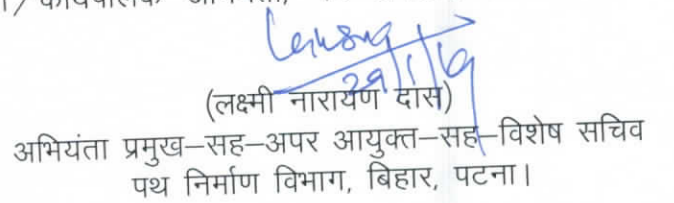 कार्यपालक
29/1/19
(लक्ष्मी नारायण दास)
अभियंता प्रमुख–सह–अपर आयुक्त–सह–विशेष सचिव
पथ निर्माण विभाग, बिहार, पटना।